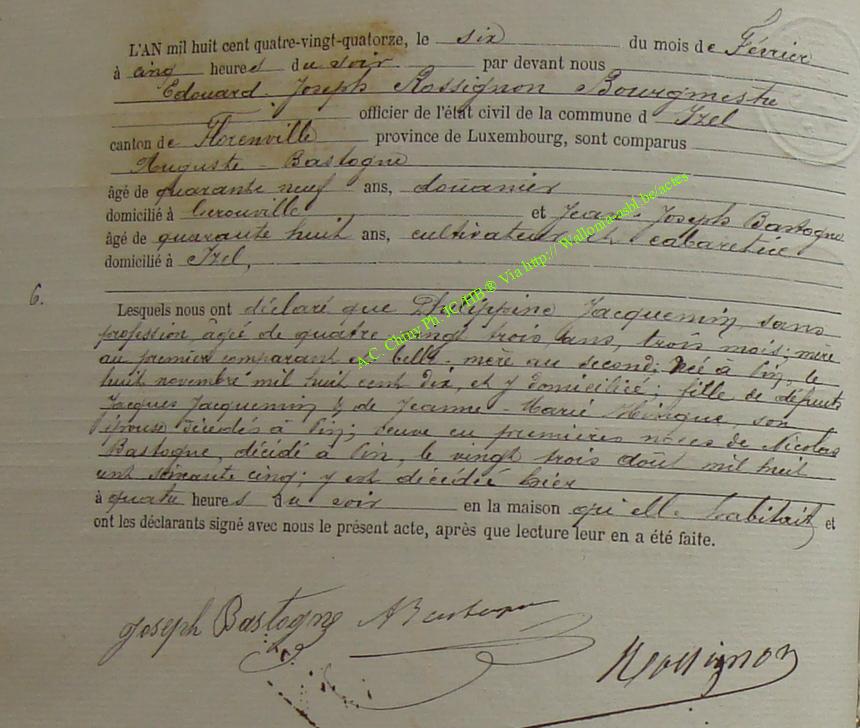 L'AN mil huit cent quatre-vingt-quatorze, le six du mois de Février
à cinq heures du soir par devant nous
Edouard Joseph Rossignon Bourgmestre
officier de l'état civil de la commune d Izel
canton de Florenville province de Luxembourg, sont comparus
Auguste Bastogne
âgé de quarante neuf ans, douanier
domicilié à Gerouville et Jean-Joseph Bastogne
âgé de quarante huit ans, cultivateur et cabaretier
domicilié à Izel,
6.
Lesquels nous ont déclaré que Philippine Jacquemin, sans
profession, âgée de quatre vingt trois ans, trois mois; mère
au premier comparant et belle-mère au second; née à Pin, le
huit novembre mil huit cent dix, et y domiciliée; fille de défunts
Jacques Jacquemin & de Jeanne-Marie son
épouse décédés à Pin; veuve en premières noces de Nicolas
Bastogne, décédé à Pin, le vingt trois août mil huit
cent soixante cinq; y est décédée hier
à quatre heures du soir en la maison qu'elle habitait et
ont les déclarants signé avec nous le présent acte, après que lecture leur en a été faite.
Joseph Bastogne ABastogne
Rossignon
A.C. Chiny Ph. JC-HB ® Via http:// Wallonia-asbl.be/actes